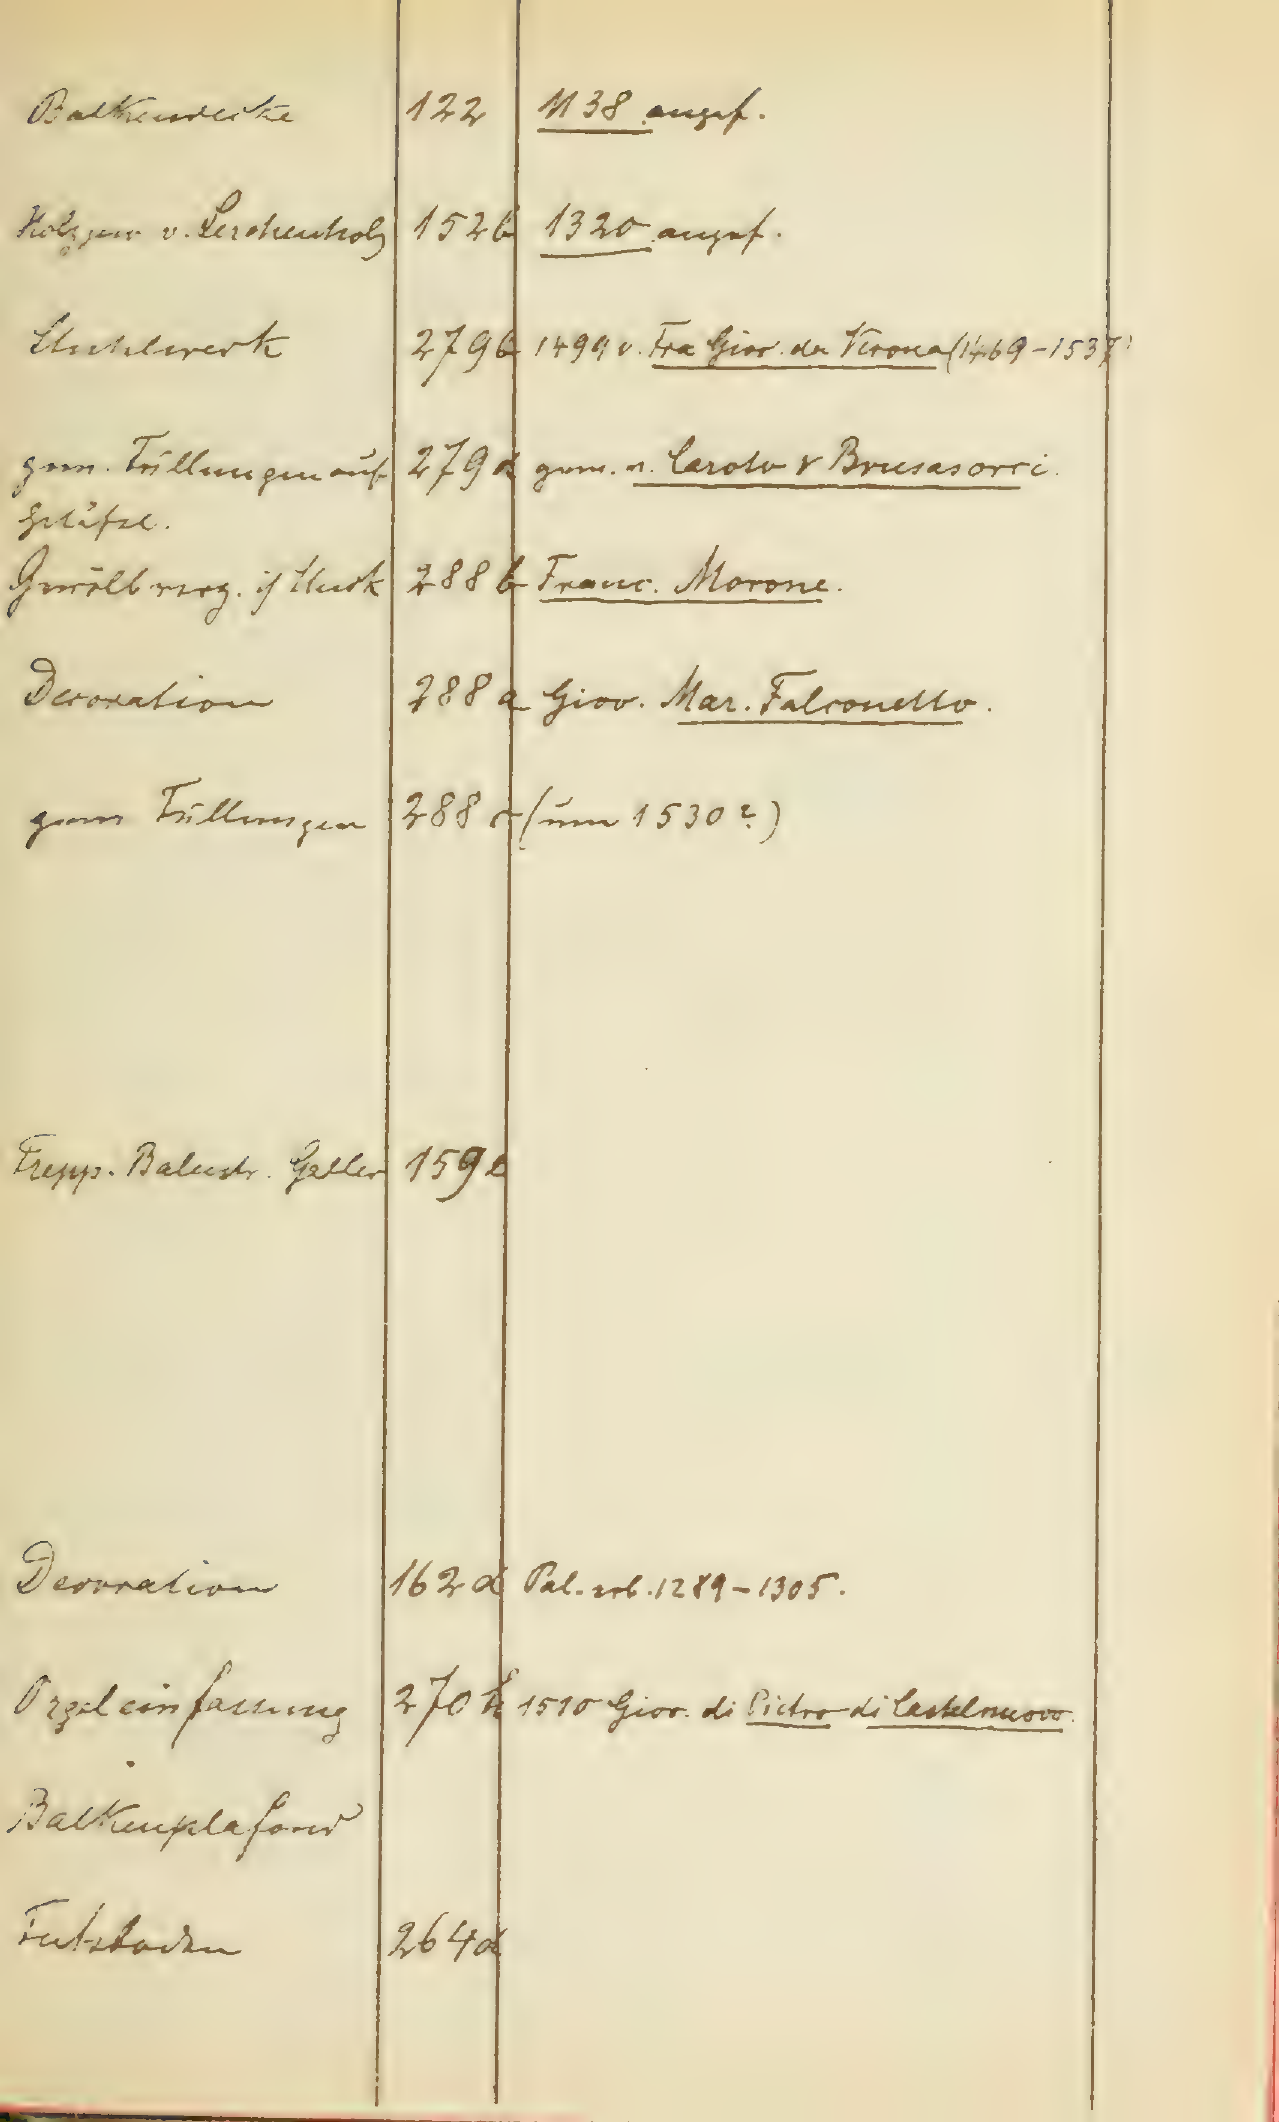 Balkendecke 122 1138 angef.
Holzgew v. Lerchenholz 152 b 1320 angef.
Stuhlwerk 279 b 1499 v. Fra Giov. da Verona (1469-1537)
gem. Füllungen auf 279 d gem. v. Caroto & Brusasorci.
Getäfel.
Gewölbverz. if Stuck 288 b Franc. Morone.
Decoration 288 a Giov. Mar. Falconetto.
gem Füllungen 288 c (um 1530?)
Trepp. Balustr. Geller 159
Decoration 162 d Pal. erb. 1289-1305.
Orgeleinfassung 270 1510 Giov. di Pietro di Castelnuovo.
Balkenplafond
Fußboden 264 d